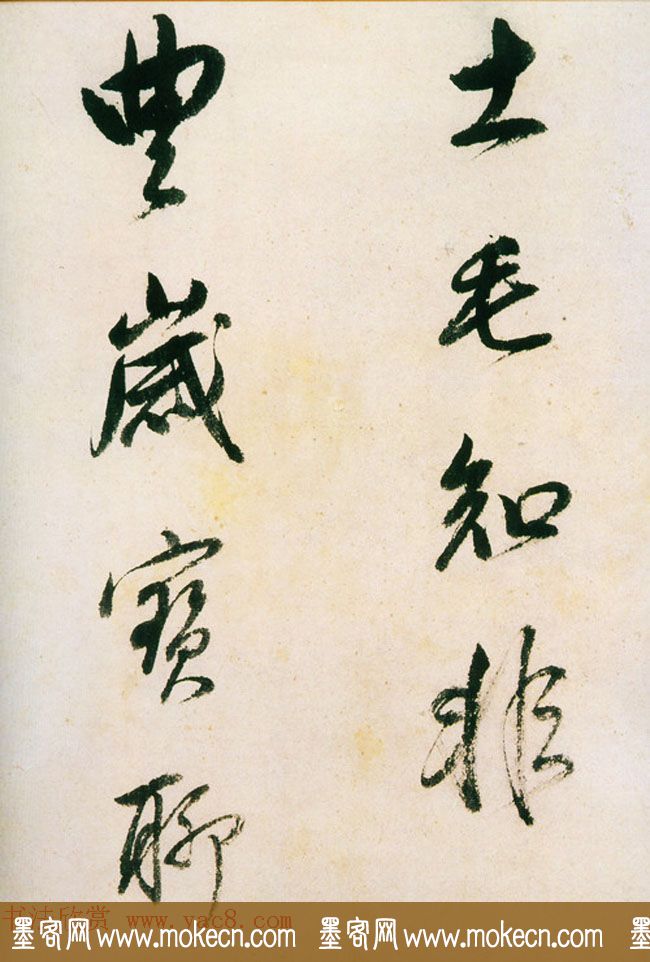 土毛知非
豊歳寶聊
书法欣赏 www.yac8.com
墨客网 www.mokecn.com 墨客网 www.mokecn.com